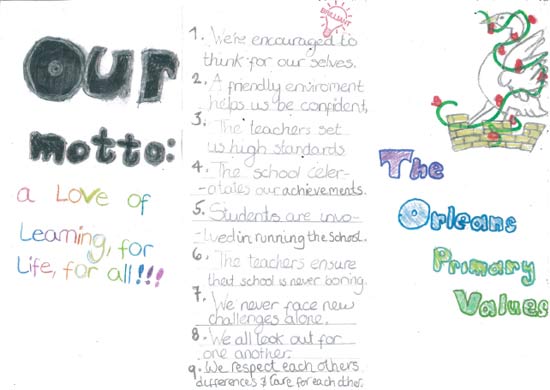 Our
motto:
a Love of
Learning, for
Life, for all!!!
BRILLIANT
1. We're encouraged to
think for our selves.
2. A friendly enviroment
helps us be confident,
3. The teachers set
us high standards
4. The school celer-
-otates our achievements.
5. Students are invo-
-lved in running the school.
6. The teachers ensure
that school is never boring.
7. We never face new
challenges alone.
8. We all look out for
one another.
9. We respect each others
differences & care for each other.
The
Orleans
Primary
Values